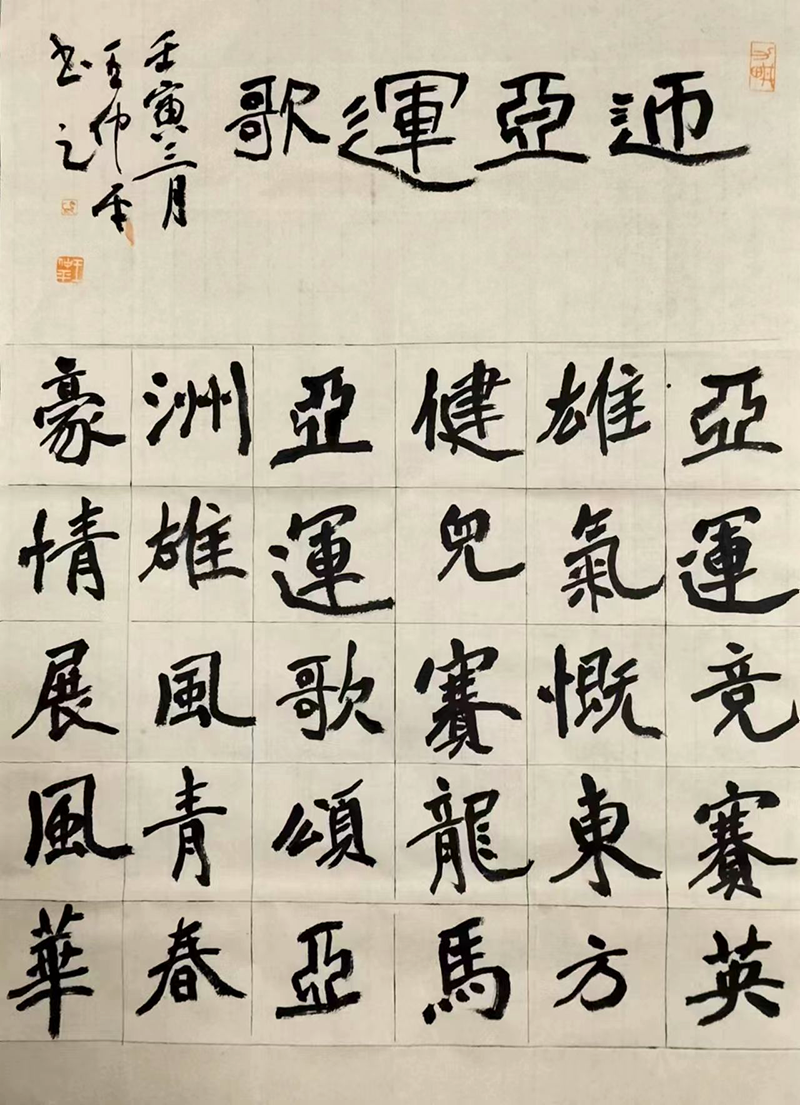 迊亞運歌
亞運竞賽英
雄氣慨東方
健兒賽龍馬
亞運歌頌亞
洲雄風青春
豪情展風華
壬寅三月
王仲平
书之